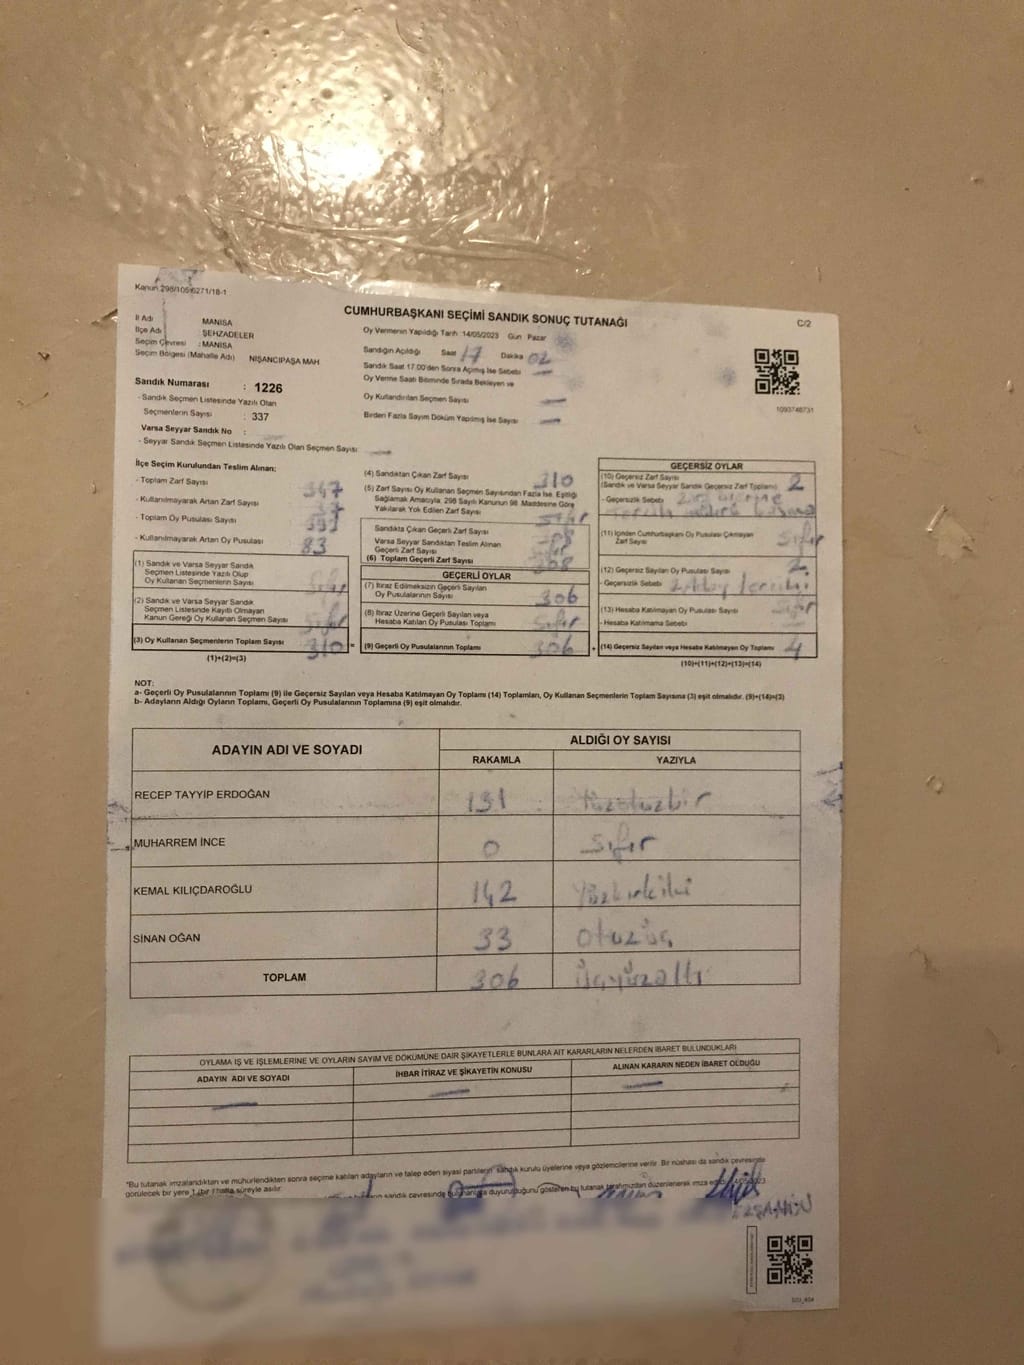 Kanun 298/105/6271/18-1
CUMHURBAŞKANI SEÇİMİ SANDIK SONUÇ TUTANAĞI
C/2
İl Adı MANİSA
İlçe Adı ŞEHZADELER
Seçim Çevresi : MANİSA
Seçim Bölgesi (Mahalle Adı) NİŞANCIPAŞA MAH
Sandık Numarası : 1226
- Sandık Seçmen Listesinde Yazılı Olan
Seçmenlerin Sayısı : 337
Varsa Seyyar Sandık No :
- Seyyar Sandık Seçmen Listesinde Yazılı Olan Seçmen Sayısı
Oy Vermenin Yapıldığı Tarih 14/05/2023 Gün Pazar
Sandığın Açıldığı Saat 17 Dakika 02
Sandık Saat 17.00'den Sonra Açılmış İse Sebebi —
Oy Verme Saati Bitiminde Sırada Bekleyen ve
Oy Kullandırılan Seçmen Sayısı —
Birden Fazla Sayım Döküm Yapılmış İse Sayısı —
1093748731
İlçe Seçim Kurulundan Teslim Alınan:
- Toplam Zarf Sayısı 347
- Kullanılmayarak Artan Zarf Sayısı 37
- Toplam Oy Pusulası Sayısı
- Kullanılmayarak Artan Oy Pusulası 83
(1) Sandık ve Varsa Seyyar Sandık
Seçmen Listesinde Yazılı Olup
Oy Kullanan Seçmenlerin Sayısı
(2) Sandık ve Varsa Seyyar Sandık
Seçmen Listesinde Kayıtlı Olmayan
Kanun Gereği Oy Kullanan Seçmen Sayısı Sıfır
(3) Oy Kullanan Seçmenlerin Toplam Sayısı 310
(1)+(2)=(3)
(4) Sandıktan Çıkan Zarf Sayısı 310
(5) Zarf Sayısı Oy Kullanan Seçmen Sayısından Fazla İse, Eşitliği
Sağlamak Amacıyla, 298 Sayılı Kanunun 98. Maddesine Göre
Yakılarak Yok Edilen Zarf Sayısı Sıfır
Sandıkta Çıkan Geçerli Zarf Sayısı 308
Varsa Seyyar Sandıktan Teslim Alınan
Geçerli Zarf Sayısı Sıfır
(6) Toplam Geçerli Zarf Sayısı 308
GEÇERLİ OYLAR
(7) İtiraz Edilmeksizin Geçerli Sayılan
Oy Pusulalarının Sayısı 306
(8) İtiraz Üzerine Geçerli Sayılan veya
Hesaba Katılan Oy Pusulası Toplamı Sıfır
= (9) Geçerli Oy Pusulalarının Toplamı 306 +
GEÇERSİZ OYLAR
(10) Geçersiz Zarf Sayısı
(Sandık ve Varsa Seyyar Sandık Geçersiz Zarf Toplamı) 2
- Geçersizlik Sebebi Zarf üzerine
Tercih mührü basma
(11) İçinden Cumhurbaşkanı Oy Pusulası Çıkmayan
Zarf Sayısı Sıfır
(12) Geçersiz Sayılan Oy Pusulası Sayısı 2
- Geçersizlik Sebebi 2 Aday Tercihi
(13) Hesaba Katılmayan Oy Pusulası Sayısı Sıfır
- Hesaba Katılmama Sebebi
(14) Geçersiz Sayılan veya Hesaba Katılmayan Oy Toplamı 4
(10)+(11)+(12)+(13)=(14)
NOT:
a- Geçerli Oy Pusulalarının Toplamı (9) ile Geçersiz Sayılan veya Hesaba Katılmayan Oy Toplamı (14) Toplamları, Oy Kullanan Seçmenlerin Toplam Sayısına (3) eşit olmalıdır. (9)+(14)=(3)
b- Adayların Aldığı Oyların Toplamı, Geçerli Oy Pusulalarının Toplamına (9) eşit olmalıdır.
ADAYIN ADI VE SOYADI
ALDIĞI OY SAYISI
RAKAMLA YAZIYLA
RECEP TAYYİP ERDOĞAN 131 Yüzotuzbir
MUHARREM İNCE 0 Sıfır
KEMAL KILIÇDAROĞLU 142 Yüzkırkiki
SİNAN OĞAN 33 Otuzüç
TOPLAM 306 Üçyüzaltı
OYLAMA İŞ VE İŞLEMLERİNE VE OYLARIN SAYIM VE DÖKÜMÜNE DAİR ŞİKAYETLERLE BUNLARA AİT KARARLARIN NELERDEN İBARET BULUNDUKLARI
ADAYIN ADI VE SOYADI İHBAR İTİRAZ VE ŞİKAYETİN KONUSU ALINAN KARARIN NEDEN İBARET OLDUĞU
— — —
*Bu tutanak imzalandıktan ve mühürlendikten sonra seçime katılan adayların ve talep eden siyasi partilerin sandık kurulu üyelerine veya gözlemcilerine verilir. Bir nüshası da sandık çevresinde
görülecek bir yere 1 (bir) hafta süreyle asılır.
sandık çevresinde duyurulduğunu gösteren bu tutanak tarafımızdan düzenlenerek imza